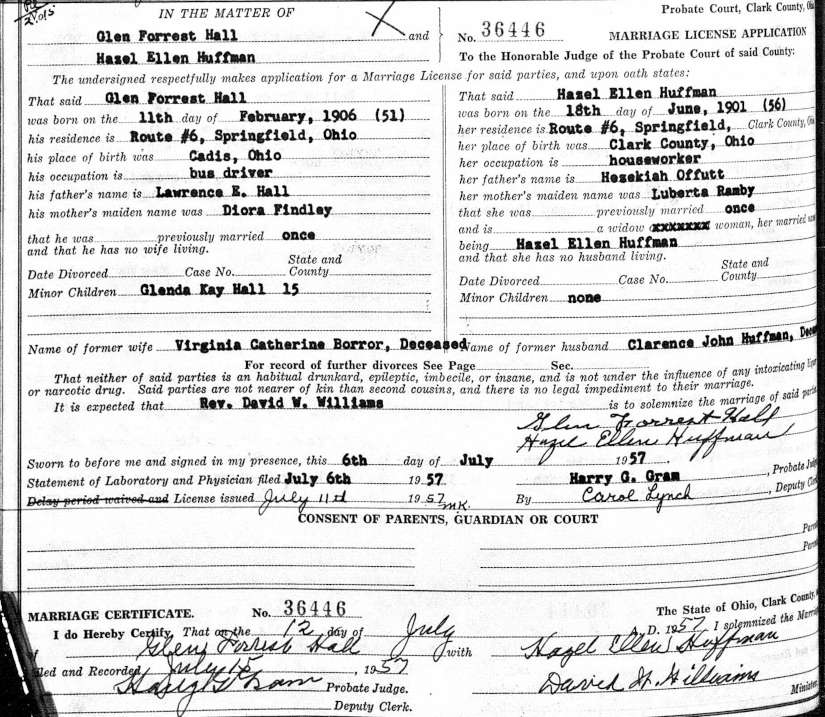 IN THE MATTER OF
Glen Forrest Hall and
Hazel Ellen Huffman
Probate Court, Clark County,
No. 36446 MARRIAGE LICENSE APPLICATION
To the Honorable Judge of the Probate Court of said County:
The undersigned respectfully makes application for a Marriage License for said parties, and upon oath states:
That said Glen Forrest Hall
was born on the 11th day of February, 1906 (51)
his residence is Route #6, Springfield, Ohio
his place of birth was Cadis, Ohio
his occupation is bus driver
his father's name is Lawrence E. Hall
his mother's maiden name was Diora Findley
that he was previously married once
and that he has no wife living.
Date Divorced Case No. State and County
Minor Children Glenda Kay Hall 15
Name of former wife Virginia Catherine Borror, Deceased
That said Hazel Ellen Huffman
was born on the 18th day of June, 1901 (56)
her residence is Route #6, Springfield, Clark County,
her place of birth was Clark County, Ohio
her occupation is houseworker
her father's name is Hezekiah Offutt
her mother's maiden name was Luberta Ramby
that she was previously married once
and is a widow or xxxxxxx woman, her married
being Hazel Ellen Huffman
and that she has no husband living.
Date Divorced Case No. State and County
Minor Children none
Name of former husband Clarence John Huffman,
For record of further divorces See Page Sec.
That neither of said parties is an habitual drunkard, epileptic, imbecile, or insane, and is not under the influence of any intoxicating
or narcotic drug. Said parties are not nearer of kin than second cousins, and there is no legal impediment to their marriage.
It is expected that Rev. David W. Williams is to solemnize the marriage of said
Glen Forrest Hall
Hazel Ellen Huffman
Sworn to before me and signed in my presence, this 6th day of July 1957
Statement of Laboratory and Physician filed July 6th 1957. Harry G. Gram, Probate
Delay period waived and License issued July 11th 1957 MK. By Carol Lynch, Deputy
CONSENT OF PARENTS, GUARDIAN OR COURT
MARRIAGE CERTIFICATE. No. 36446 The State of Ohio, Clark County,
I do Hereby Certify, That on the 12 day of July A. D. 1957 I solemnized the
of Glenn Forrest Hall with Hazel Ellen Huffman
Filed and Recorded July 15, 1957 David W. Williams
Harry G Gram Probate Judge.
Deputy Clerk.